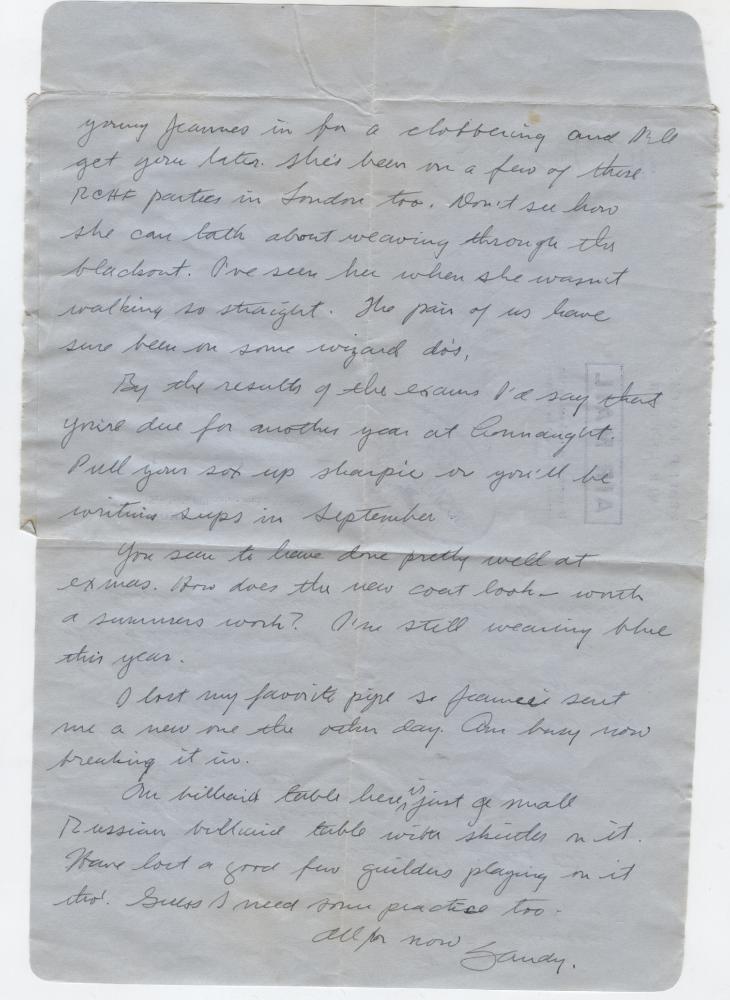 young Jeannes in for a clobbering and I'll
get you later. She's been on a few of those
RCAF parties in London too. Don't see how
she can talk about weaving through the
blackout. I've seen her when she wasn't
walking so straight. The pair of us have
sure been on some wizard do's,
By the results of the exams I'd say that
you're due for another year at Connaught.
Pull your sox up sharpie or you'll be
writing sups in September
You seem to have done pretty well at
exmas. How does the new coat look – worth
a summers work? I'm still wearing blue
this year.
I lost my favorite pipe so Jeannie sent
me a new one the other day. Am busy now
breaking it in.
Our billiard table here is just a small
Russian billiard table with skittles on it.
Have lost a good few guilders playing on it
tho'. Guess I need some practice too.
All for now
Sandy.
AIR MAIL